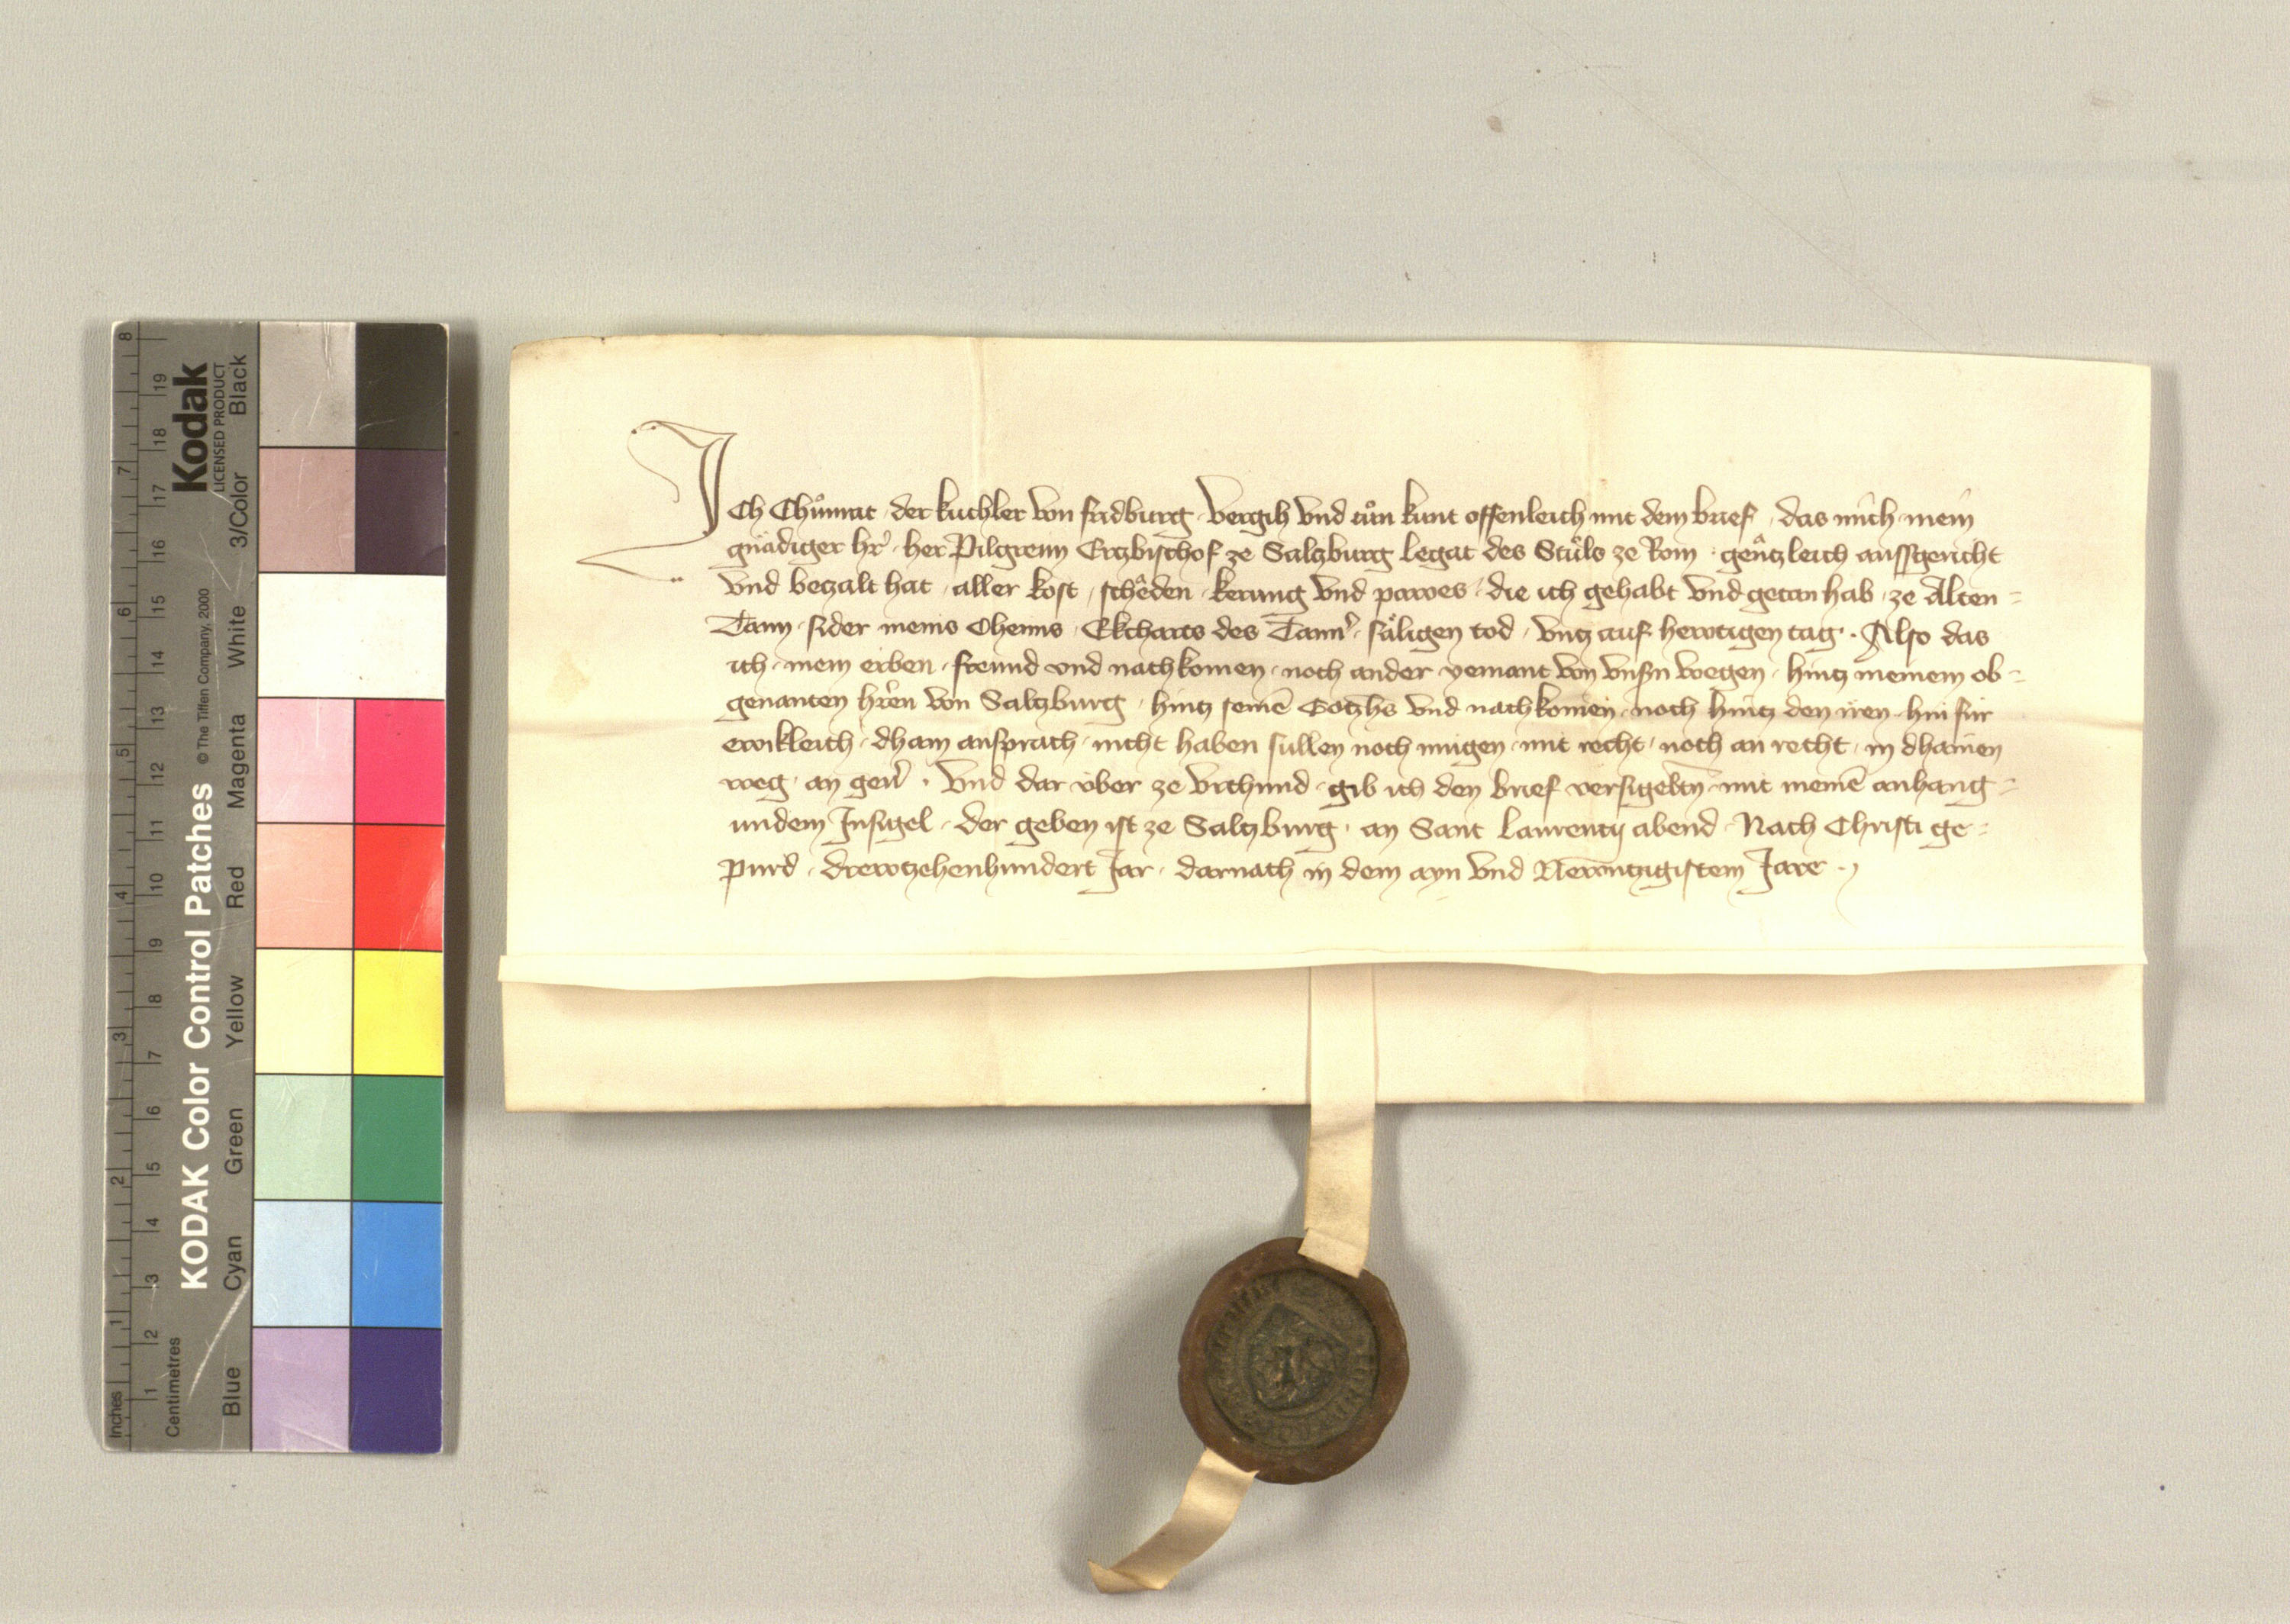 Ich Chůnrat · der kuchler von fridburg · vergih vnd tůn kunt offenleich mit dem brief · das mich · mein
gnädiger hr̄ · her Pilgreim Ertzbischof ze Saltzburg legat des Stůls ze Rom · gêntzleich aussgericht
vnd betzalt hat · aller kost · schêden · kerung vnd pawes · die ich gehabt vnd getan hab · ze Alten=
Tann · sider meins Ohems · Ekcharts des Tannˀ · såligen tod · vntz auf hewtigen tag · Also das
ich · mein erben · freund vnd nachkomen · noch ander yemant von vnsn wegen · hintz meinem ob=
genanten hr̄en von Saltzburg · hintz seinē Gotzhs vnd nachkomen · noch hintz den iren · hin für
ewikleich · dhain ansprach · nicht haben süllen noch mügen · mit recht · noch an recht · in dhainen
weg · an geuˀ · Vnd dar über ze vrchund · gib ich den brief versigeltn̄ · mit meinē anhang=
undem Insigel · der geben ist ze Saltzburg · an Sant Laurentij abend · Nach Christi ge=
purd · drewtzehenhundert Jar · darnach in dem ayn vnd Newntzigistem Jare ·
KODAK Color Control Patches © The Tiffen Company, 2000
Kodak
LICENSED PRODUCT
Blue Cyan Green Yellow Red Magenta White 3/Color Black
Inches 1 2 3 4 5 6 7 8
Centimetres 1 2 3 4 5 6 7 8 9 10 11 12 13 14 15 16 17 18 19